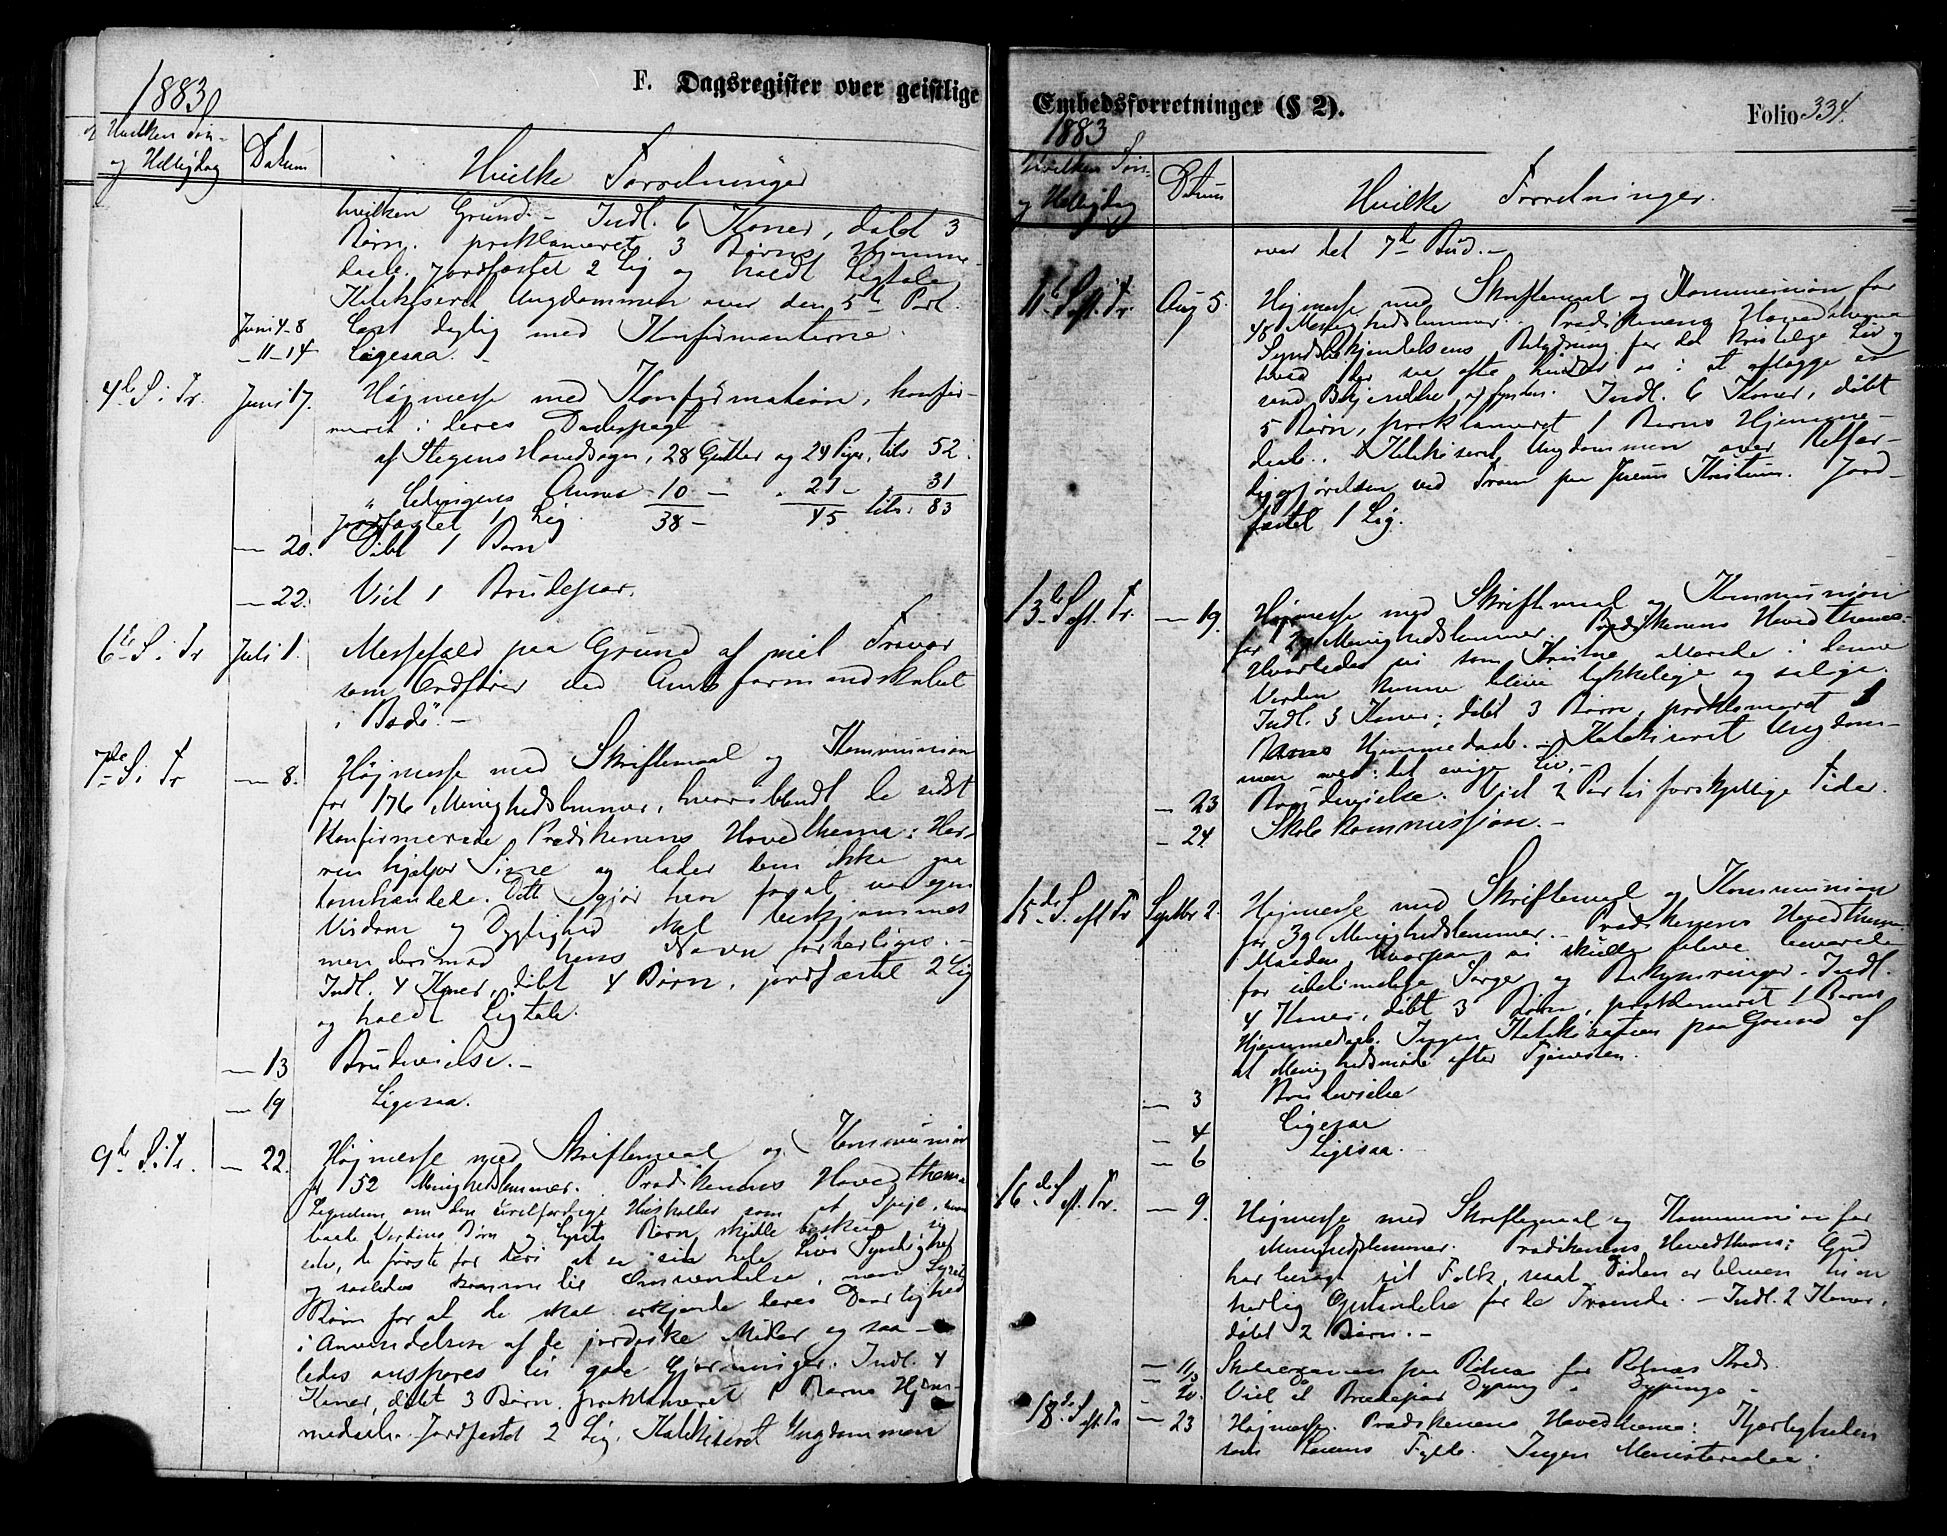 F. Dagsregister over geistlige
1883
Hvilken Søn-
og Helligdag
Datum
Hvilke Forretninger
hvilken Grund. - Indl. 6 Koner, døbt 3
Børn. proklameret 3 Børns Hjemme-
daab. Jordfæstet 2 Lig og holdt Ligtale
Katekiseret Ungdommen over den 5te Part.
Juni 4-8 Læst daglig med Konfirmanterne.
- 11-14 Ligesaa. -
4de S. i Tr. Juni 17. Højmesse med Konfirmation, konfir-
meret i deres Daabspagt
af Stegens Hovedsogn, 28 Gutter og 24 Piger, tils. 52.
" Ledingens Annex 10 - " 21 - " 31
Jordfæstet 1 Lig. 38 - 45 tils. 83
- 20. Døbt 1 Barn
- 22. Viet 1 Brudepar.
6te S. i Tr. Juli 1. Messefald paa Grund af mit Fravær
som Ordfører ved Amtsformandskabet
i Bodø. -
7de S. i Tr. - 8. Højmesse med Skriftemaal og Kommunion
for 176 Menighedslemmer, hvoriblandt de sidst
Konfirmerede. Prædikenens Hovedthema: Her-
ren hjælper Sine og lader dem ikke gaa
tomhændede. Dette gjør han forat vor egen
Visdom og Dygtighed skal beskjæmmes
men derimod hans Navn forherliges. -
Indl. 4 Koner, døbt 4 Børn, jordfæstet 2 Lig
og holdt Ligtale.
- 13 Brudevielse. -
- 19 Ligesaa.
9de S. i Tr. - 22. Højmesse med Skriftemaal og Kommunion
for 152 Menighedslemmer. Prædikenens Hovedthema
Lignelsen om den uretfærdige Husholder som et Speil, hvori
baade Verdens Børn og Lysets Børn skulle beskue sig
selv, de første for deri at se sin hele Livs Syndighed
og saaledes komme til Omvendelse, men Lysets
Børn for at de skal erkjende deres Daarlighed
i Anvendelsen af de jordiske Midler og saa-
ledes anspores til gode Gjerninger. Indl. 4
Koner, døbt 3 Børn, proklameret 1 Barns Hjem-
medaab. Jordfæstet 2 Lig. Katekiseret Ungdommen
Embedsforretninger (§ 2).
Folio 334.
1883
Hvilken Søn-
og Helligdag
Datum
Hvilke Forretninger.
over det 7de Bud. -
11te S. eft. Tr. Aug 5. Højmesse med Skriftemaal og Kommunion for
48 Menighedslemmer. Prædikenens Hovedthema
Syndsbekjendelsens Betydning for det kristelige Liv og
hvad der saa ofte hindrer os i at aflægge en
sand Bekjendelse af Synden. Indl. 6 Koner, døbt
5 Børn, proklameret 1 Barns Hjemme-
daab. Katekiseret Ungdommen over Retfær-
diggjørelsen ved Troen paa Jesum Kristum. Jord-
fæstet 1 Lig.
13de S. eft. Tr. - 19. Højmesse med Skriftemaal og Kommunion
for Menighedslemmer. Prædikenens Hovedthema:
Hvorledes vi som Kristne allerede i denne
Verden kunne blive lykkelige og salige.
Indl. 3 Koner, døbt 3 Børn, proklameret 1
Barns Hjemmedaab. - Katekiseret Ungdom-
men over: det evige Liv. -
- 23 Brudevielse. Viet 2 Par til forskjellige Tider.
- 24. Skolekommission. -
15de S. eft Tr Septbr 2. Højmesse med Skriftemaal og Kommunion
for 39 Menighedslemmer. - Prædikenens Hovedthema
Maaden, hvorpaa vi skulle blive bevarede
for utilmelige Sorger og Bekymringer. Indl.
4 Koner, døbt 3 Børn, proklameret 1 Barns
Hjemmedaab. Ingen Katekisation paa Grund af
et Menighedsmøde efter Tjenesten.
- 3 Brudevielse
- 4 Ligesaa
- 6 Ligesaa. -
16de S. eft. Tr. - 9. Højmesse med Skriftemaal og Kommunion for
Menighedslemmer. Prædikenens Hovedthema: Gud
har besøgt sit Folk, saa at Døden er bleven til en
herlig Opstandelse for de Troende. - Indl. 2 Koner,
døbt 2 Børn. -
- 11 Skoleexamen paa for Kreds.
- 20. Viet et Brudepar
18de S. eft Tr - 23 Højmesse. Prædikenens Hovedthema: Kjærligheden
som Lovens Fylde. Ingen Ministerialia.